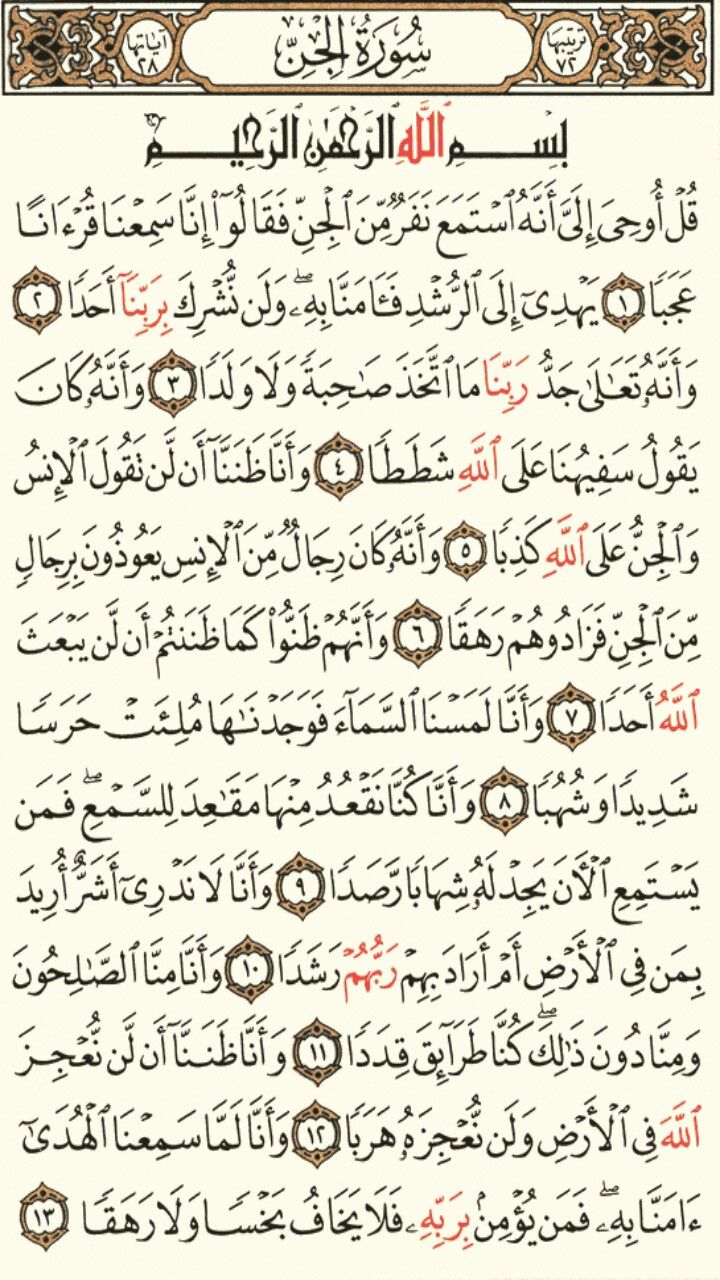 ترتيبها ٧٢ سُورَةُ الجِنّ آياتها ٢٨
بِسْمِ ٱللَّهِ ٱلرَّحْمَٰنِ ٱلرَّحِيمِ
قُلْ أُوحِىَ إِلَىَّ أَنَّهُ ٱسْتَمَعَ نَفَرٌ مِّنَ ٱلْجِنِّ فَقَالُوٓا۟ إِنَّا سَمِعْنَا قُرْءَانًا
عَجَبًا ١ يَهْدِىٓ إِلَى ٱلرُّشْدِ فَـَٔامَنَّا بِهِۦ ۖ وَلَن نُّشْرِكَ بِرَبِّنَآ أَحَدًا ٢
وَأَنَّهُۥ تَعَٰلَىٰ جَدُّ رَبِّنَا مَا ٱتَّخَذَ صَٰحِبَةً وَلَا وَلَدًا ٣ وَأَنَّهُۥ كَانَ
يَقُولُ سَفِيهُنَا عَلَى ٱللَّهِ شَطَطًا ٤ وَأَنَّا ظَنَنَّآ أَن لَّن تَقُولَ ٱلْإِنسُ
وَٱلْجِنُّ عَلَى ٱللَّهِ كَذِبًا ٥ وَأَنَّهُۥ كَانَ رِجَالٌ مِّنَ ٱلْإِنسِ يَعُوذُونَ بِرِجَالٍ
مِّنَ ٱلْجِنِّ فَزَادُوهُمْ رَهَقًا ٦ وَأَنَّهُمْ ظَنُّوا۟ كَمَا ظَنَنتُمْ أَن لَّن يَبْعَثَ
ٱللَّهُ أَحَدًا ٧ وَأَنَّا لَمَسْنَا ٱلسَّمَآءَ فَوَجَدْنَٰهَا مُلِئَتْ حَرَسًا
شَدِيدًا وَشُهُبًا ٨ وَأَنَّا كُنَّا نَقْعُدُ مِنْهَا مَقَٰعِدَ لِلسَّمْعِ ۖ فَمَن
يَسْتَمِعِ ٱلْـَٔانَ يَجِدْ لَهُۥ شِهَابًا رَّصَدًا ٩ وَأَنَّا لَا نَدْرِىٓ أَشَرٌّ أُرِيدَ
بِمَن فِى ٱلْأَرْضِ أَمْ أَرَادَ بِهِمْ رَبُّهُمْ رَشَدًا ١٠ وَأَنَّا مِنَّا ٱلصَّٰلِحُونَ
وَمِنَّا دُونَ ذَٰلِكَ ۖ كُنَّا طَرَآئِقَ قِدَدًا ١١ وَأَنَّا ظَنَنَّآ أَن لَّن نُّعْجِزَ
ٱللَّهَ فِى ٱلْأَرْضِ وَلَن نُّعْجِزَهُۥ هَرَبًا ١٢ وَأَنَّا لَمَّا سَمِعْنَا ٱلْهُدَىٰٓ
ءَامَنَّا بِهِۦ ۖ فَمَن يُؤْمِنۢ بِرَبِّهِۦ فَلَا يَخَافُ بَخْسًا وَلَا رَهَقًا ١٣